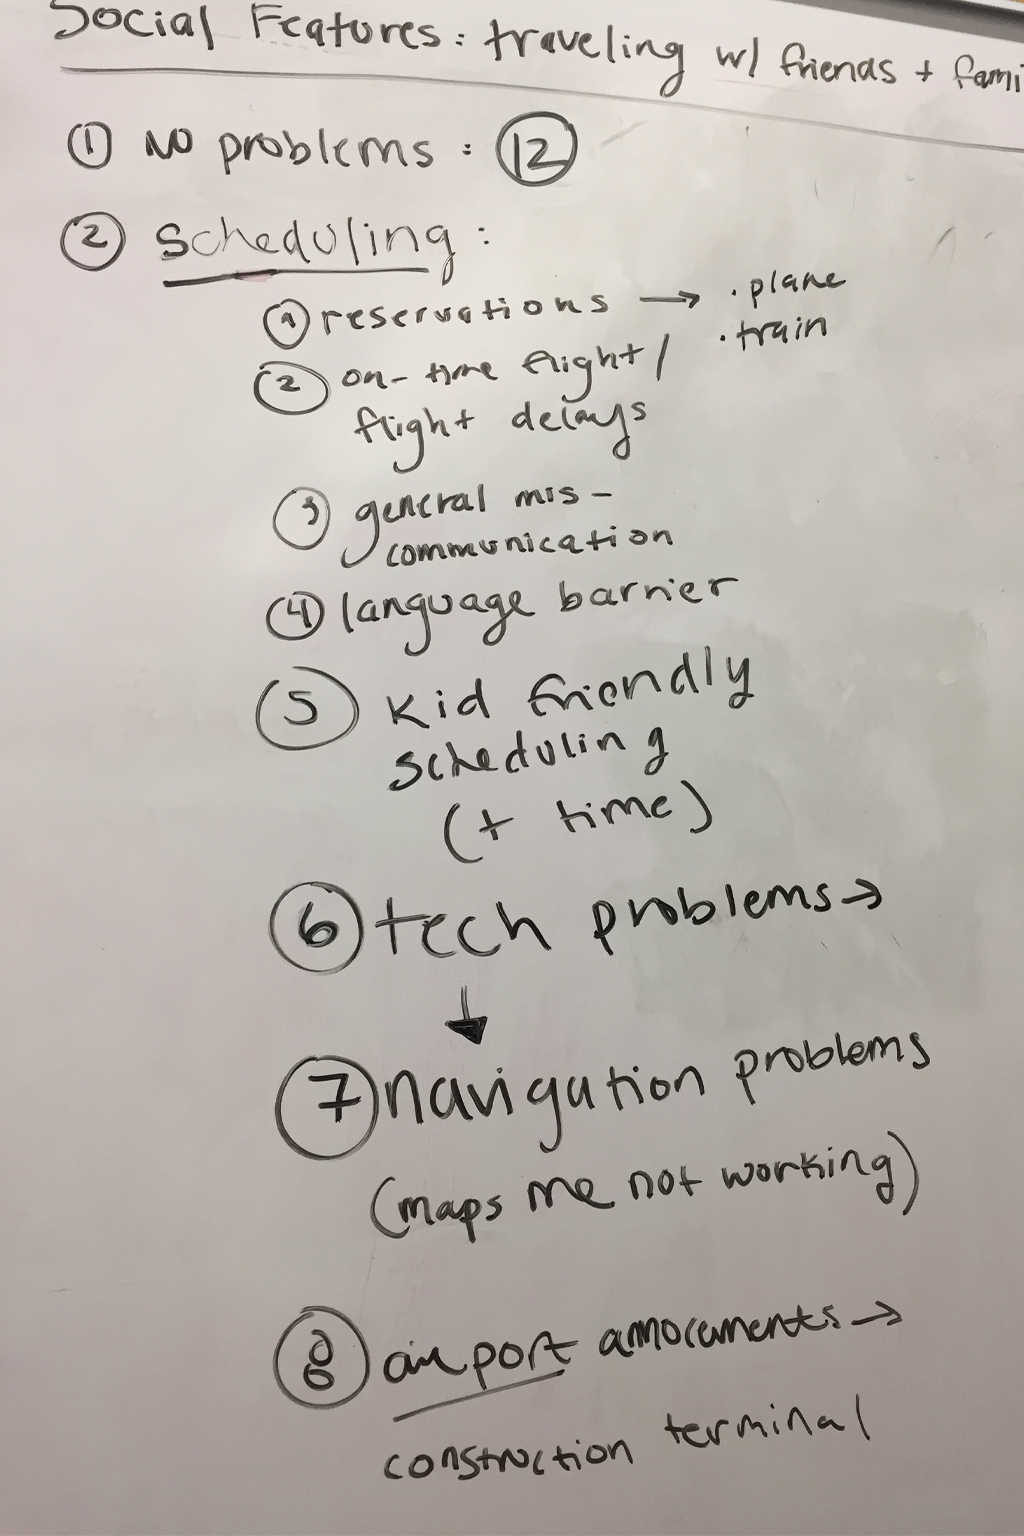 Social Features: traveling w/ friends + fami
① NO problems: ⑫
② Scheduling:
① reservations → · plane
· train
② on-time flight/
flight delays
③ general mis-
communication
④ language barrier
⑤ Kid friendly
scheduling
(+ time)
⑥ tech problems →
↓
⑦ navigation problems
(maps me not working)
⑧ airport annoucements →
construction terminal